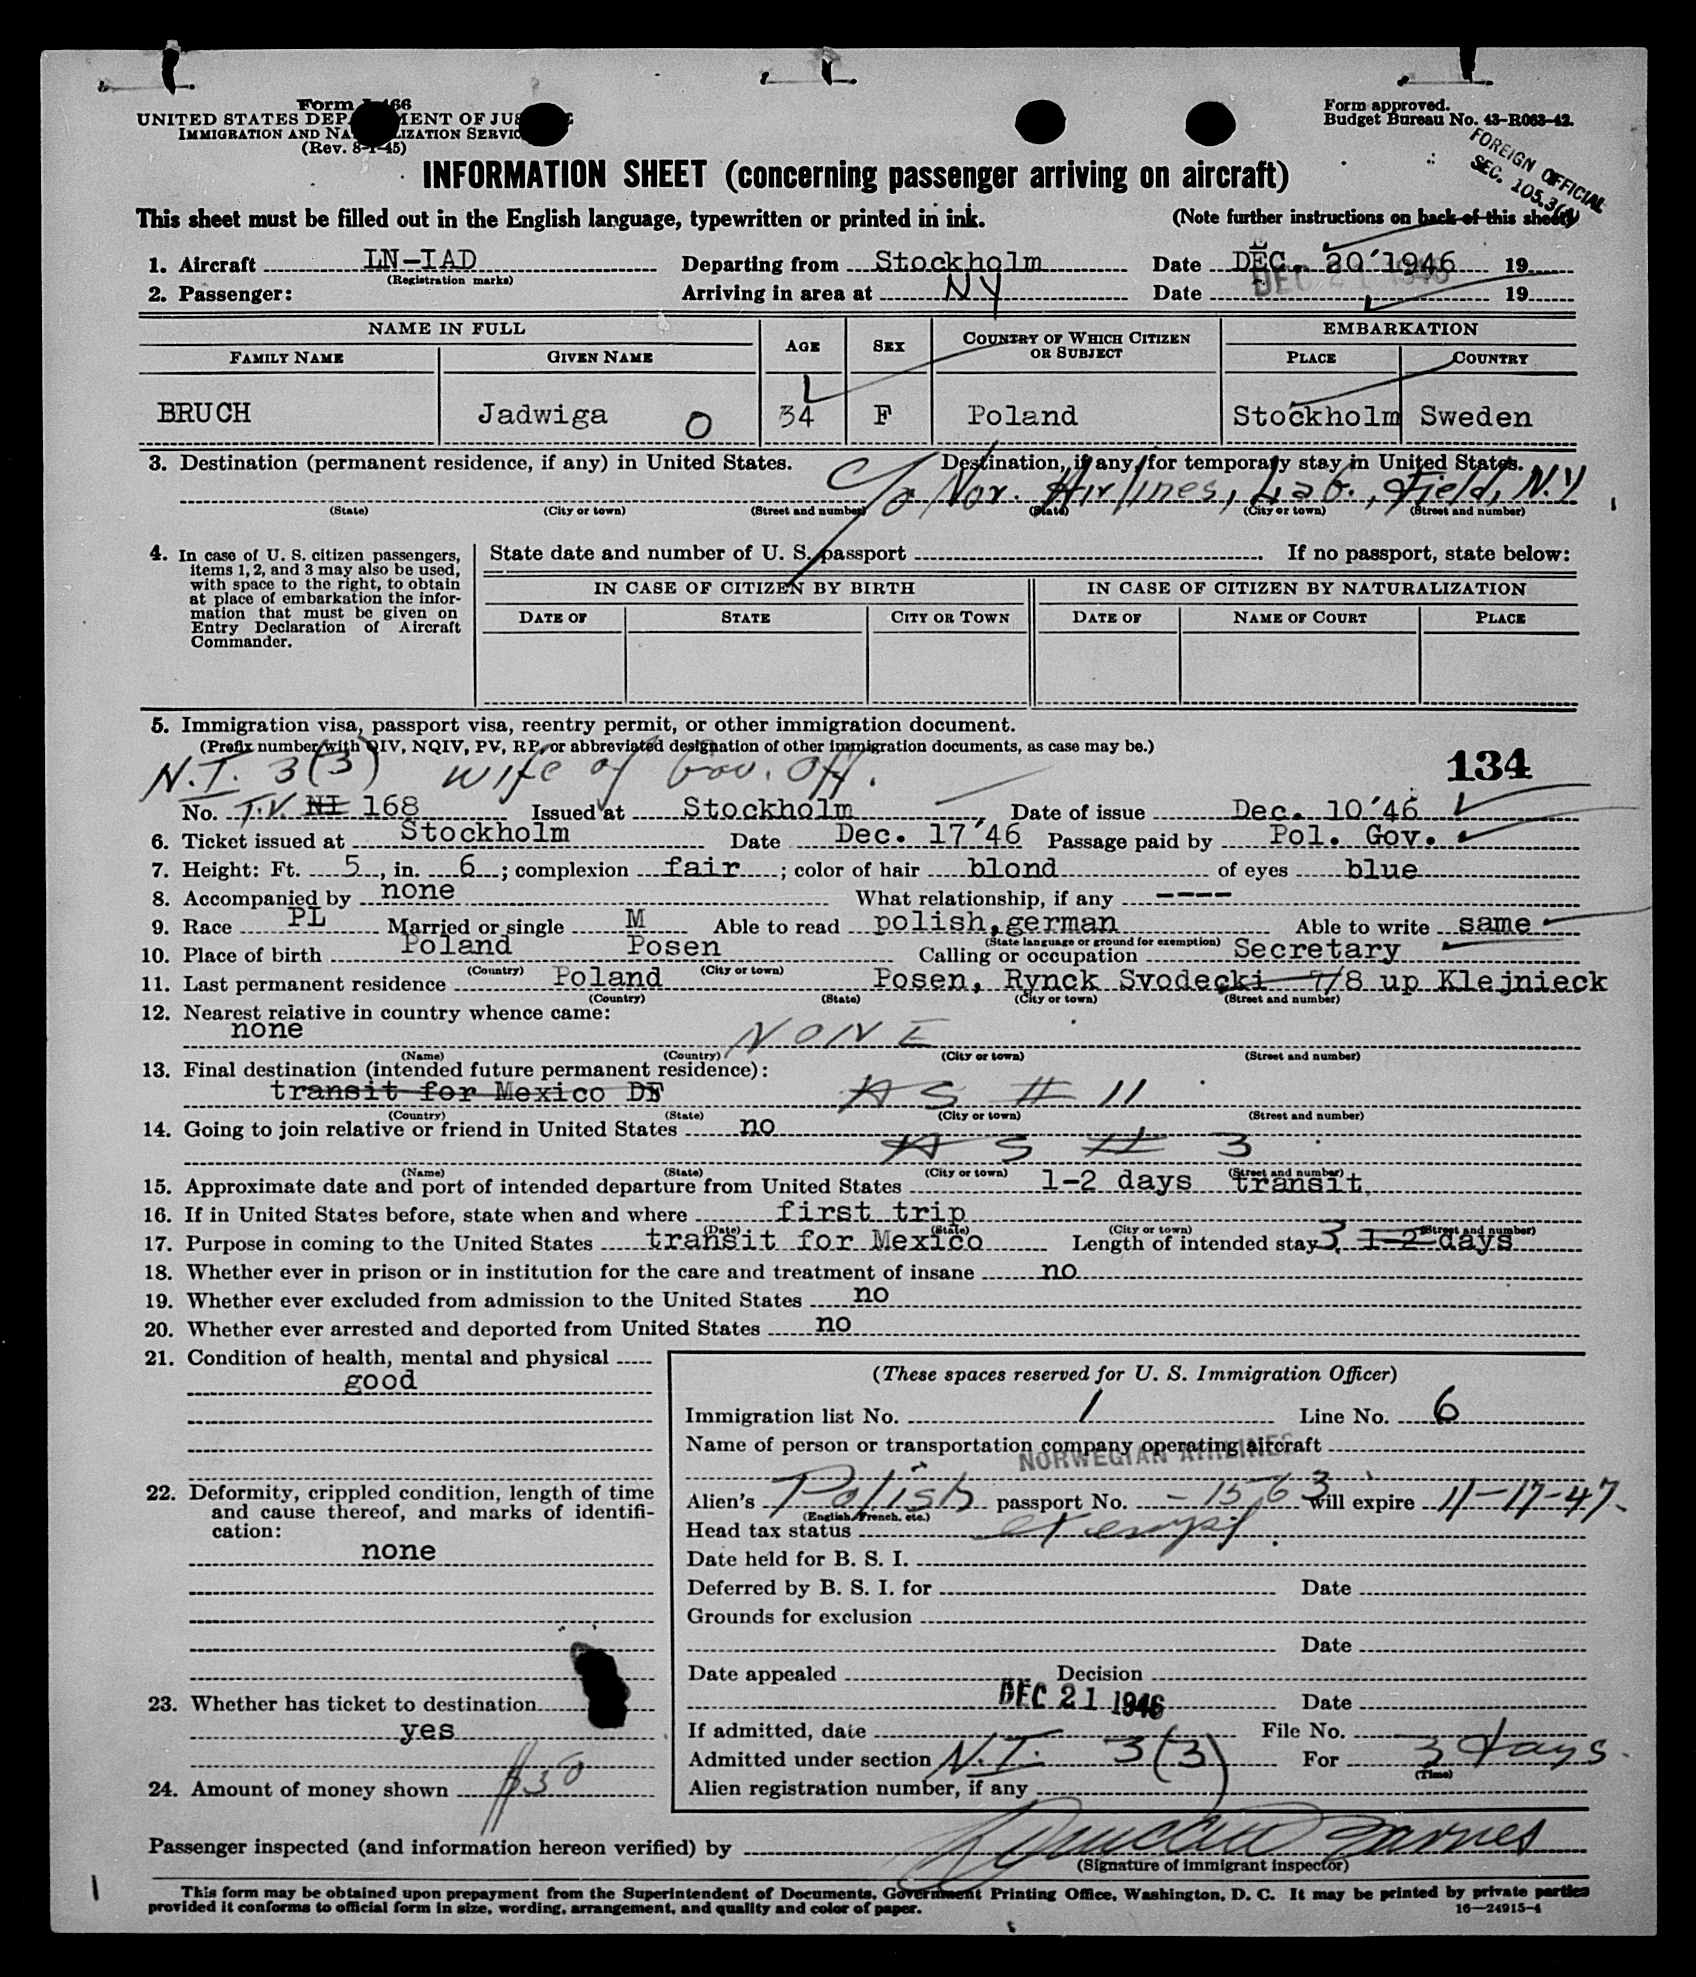 Form I-466
UNITED STATES DEPARTMENT OF JUSTICE
IMMIGRATION AND NATURALIZATION SERVICE
(Rev. 8-1-45)
Form approved.
Budget Bureau No. 43-R063-42.
FOREIGN OFFICIAL
SEC. 105.3(A)
INFORMATION SHEET (concerning passenger arriving on aircraft)
This sheet must be filled out in the English language, typewritten or printed in ink. (Note further instructions on back of this sheet)
1. Aircraft LN-IAD Departing from Stockholm Date DEC. 20'1946 19
(Registration marks)
2. Passenger: Arriving in area at NY Date DEC 21 1946 19
NAME IN FULL AGE SEX COUNTRY OF WHICH CITIZEN OR SUBJECT EMBARKATION
FAMILY NAME GIVEN NAME PLACE COUNTRY
BRUCH Jadwiga O 34 F Poland Stockholm Sweden
3. Destination (permanent residence, if any) in United States. Destination, if any, for temporary stay in United States.
C/o Nor. Airlines, La G., Field, N.Y
(State) (City or town) (Street and number) (State) (City or town) (Street and number)
4. In case of U. S. citizen passengers, items 1, 2, and 3 may also be used, with space to the right, to obtain at place of embarkation the information that must be given on Entry Declaration of Aircraft Commander.
State date and number of U. S. passport If no passport, state below:
IN CASE OF CITIZEN BY BIRTH IN CASE OF CITIZEN BY NATURALIZATION
DATE OF STATE CITY OR TOWN DATE OF NAME OF COURT PLACE
5. Immigration visa, passport visa, reentry permit, or other immigration document.
(Prefix number with QIV, NQIV, PV, RP, or abbreviated designation of other immigration documents, as case may be.)
134
N.I. 3(3) wife of Gov. Off.
No. T.V. NI 168 Issued at Stockholm Date of issue Dec. 10'46
6. Ticket issued at Stockholm Date Dec. 17'46 Passage paid by Pol. Gov.
7. Height: Ft. 5, in. 6; complexion fair; color of hair blond of eyes blue
8. Accompanied by none What relationship, if any ----
9. Race PL Married or single M Able to read polish,german Able to write same
(State language or ground for exemption)
10. Place of birth Poland Posen Calling or occupation Secretary
(Country) (City or town)
11. Last permanent residence Poland Posen, Rynck Svodecki 7/8 up Klejnieck
(Country) (State) (City or town) (Street and number)
12. Nearest relative in country whence came:
none NONE
(Name) (Country) (City or town) (Street and number)
13. Final destination (intended future permanent residence):
transit for Mexico DF AS # 11
(Country) (State) (City or town) (Street and number)
14. Going to join relative or friend in United States no
AS # 3
(Name) (State) (City or town) (Street and number)
15. Approximate date and port of intended departure from United States 1-2 days transit
16. If in United States before, state when and where first trip
(Date) (State) (City or town) (Street and number)
17. Purpose in coming to the United States transit for Mexico Length of intended stay 3 1-2 days
18. Whether ever in prison or in institution for the care and treatment of insane no
19. Whether ever excluded from admission to the United States no
20. Whether ever arrested and deported from United States no
21. Condition of health, mental and physical
good
22. Deformity, crippled condition, length of time and cause thereof, and marks of identification:
none
23. Whether has ticket to destination
yes
24. Amount of money shown $50
(These spaces reserved for U. S. Immigration Officer)
Immigration list No. 1 Line No. 6
Name of person or transportation company operating aircraft
NORWEGIAN AIRLINES
Alien's Polish passport No. - 1563 will expire 11-17-47.
(English, French, etc.)
Head tax status exempt.
Date held for B. S. I.
Deferred by B. S. I. for Date
Grounds for exclusion
Date
Date appealed Decision
DEC 21 1946 Date
If admitted, date File No.
Admitted under section N.I. 3(3) For 3 days.
(Time)
Alien registration number, if any
Passenger inspected (and information hereon verified) by Barnes
(Signature of immigrant inspector)
This form may be obtained upon prepayment from the Superintendent of Documents, Government Printing Office, Washington, D. C. It may be printed by private parties
provided it conforms to official form in size, wording, arrangement, and quality and color of paper. 16—24915-4